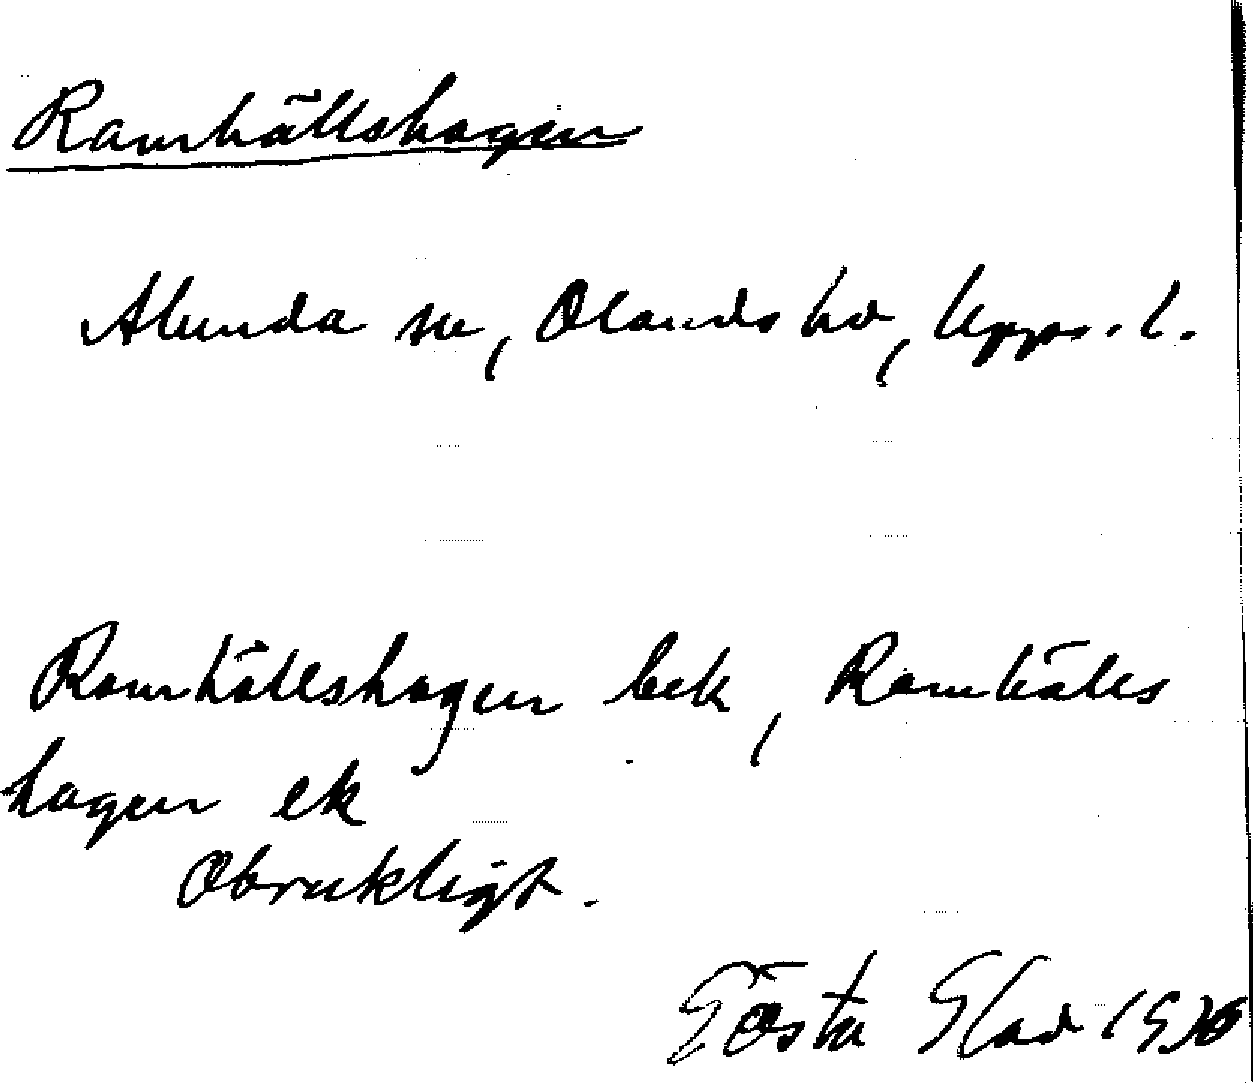 Ramhällshagen
Alunda sn, Olands hd, Upps. l.
Ramhällshagen bek, Ramhälls
hagen ek
Obrukligt.
Gösta Glad